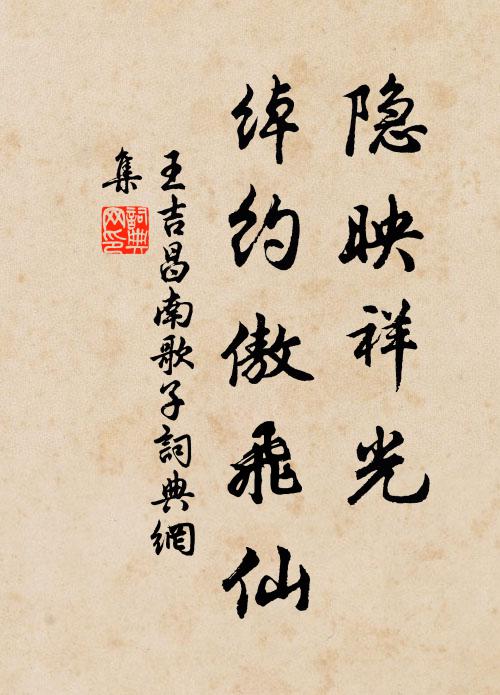 隐映祥光
绰约傲飛仙
王吉昌南歌子詞典網
集
詞典
网印